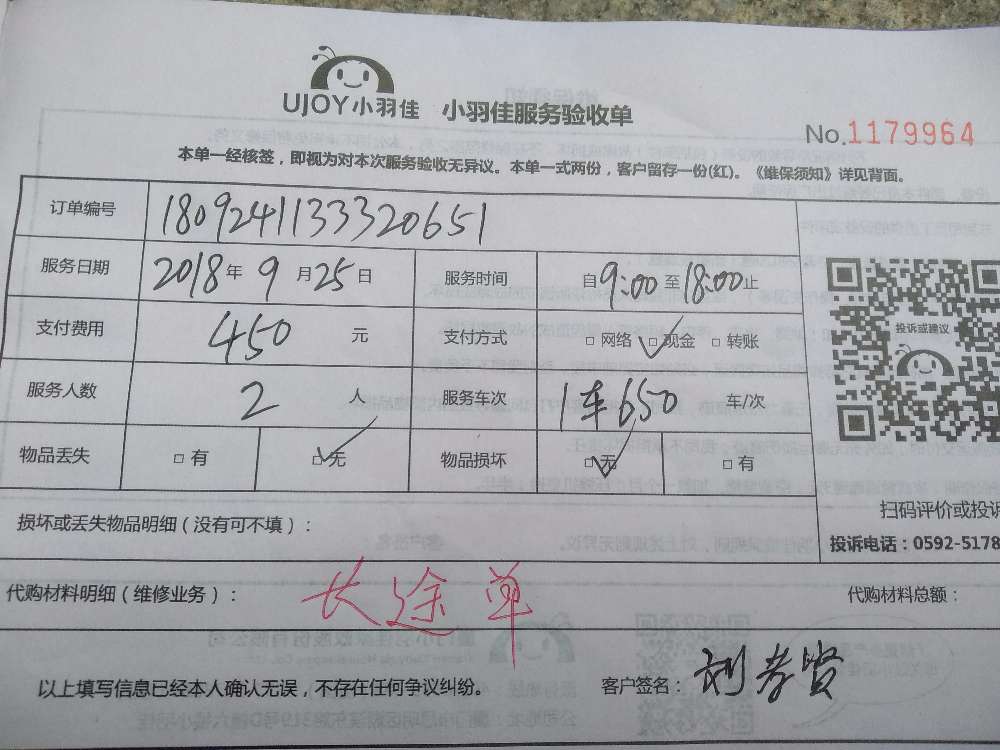 UJOY小羽佳 小羽佳服务验收单
No.1179964
本单一经核签，即视为对本次服务验收无异议。本单一式两份，客户留存一份(红)。《维保须知》详见背面。
订单编号 1809241133320651
服务日期 2018年9月25日 服务时间 自9:00至18:00止
支付费用 450 元 支付方式 □网络 □现金 □转账
投诉或建议
服务人数 2 人 服务车次 1车650 车/次
物品丢失 □有 □无 物品损坏 □无 □有
扫码评价或投诉
损坏或丢失物品明细（没有可不填）：
投诉电话：0592-5178
代购材料明细（维修业务）： 长途单 代购材料总额：
以上填写信息已经本人确认无误，不存在任何争议纠纷。 客户签名：刘孝贤